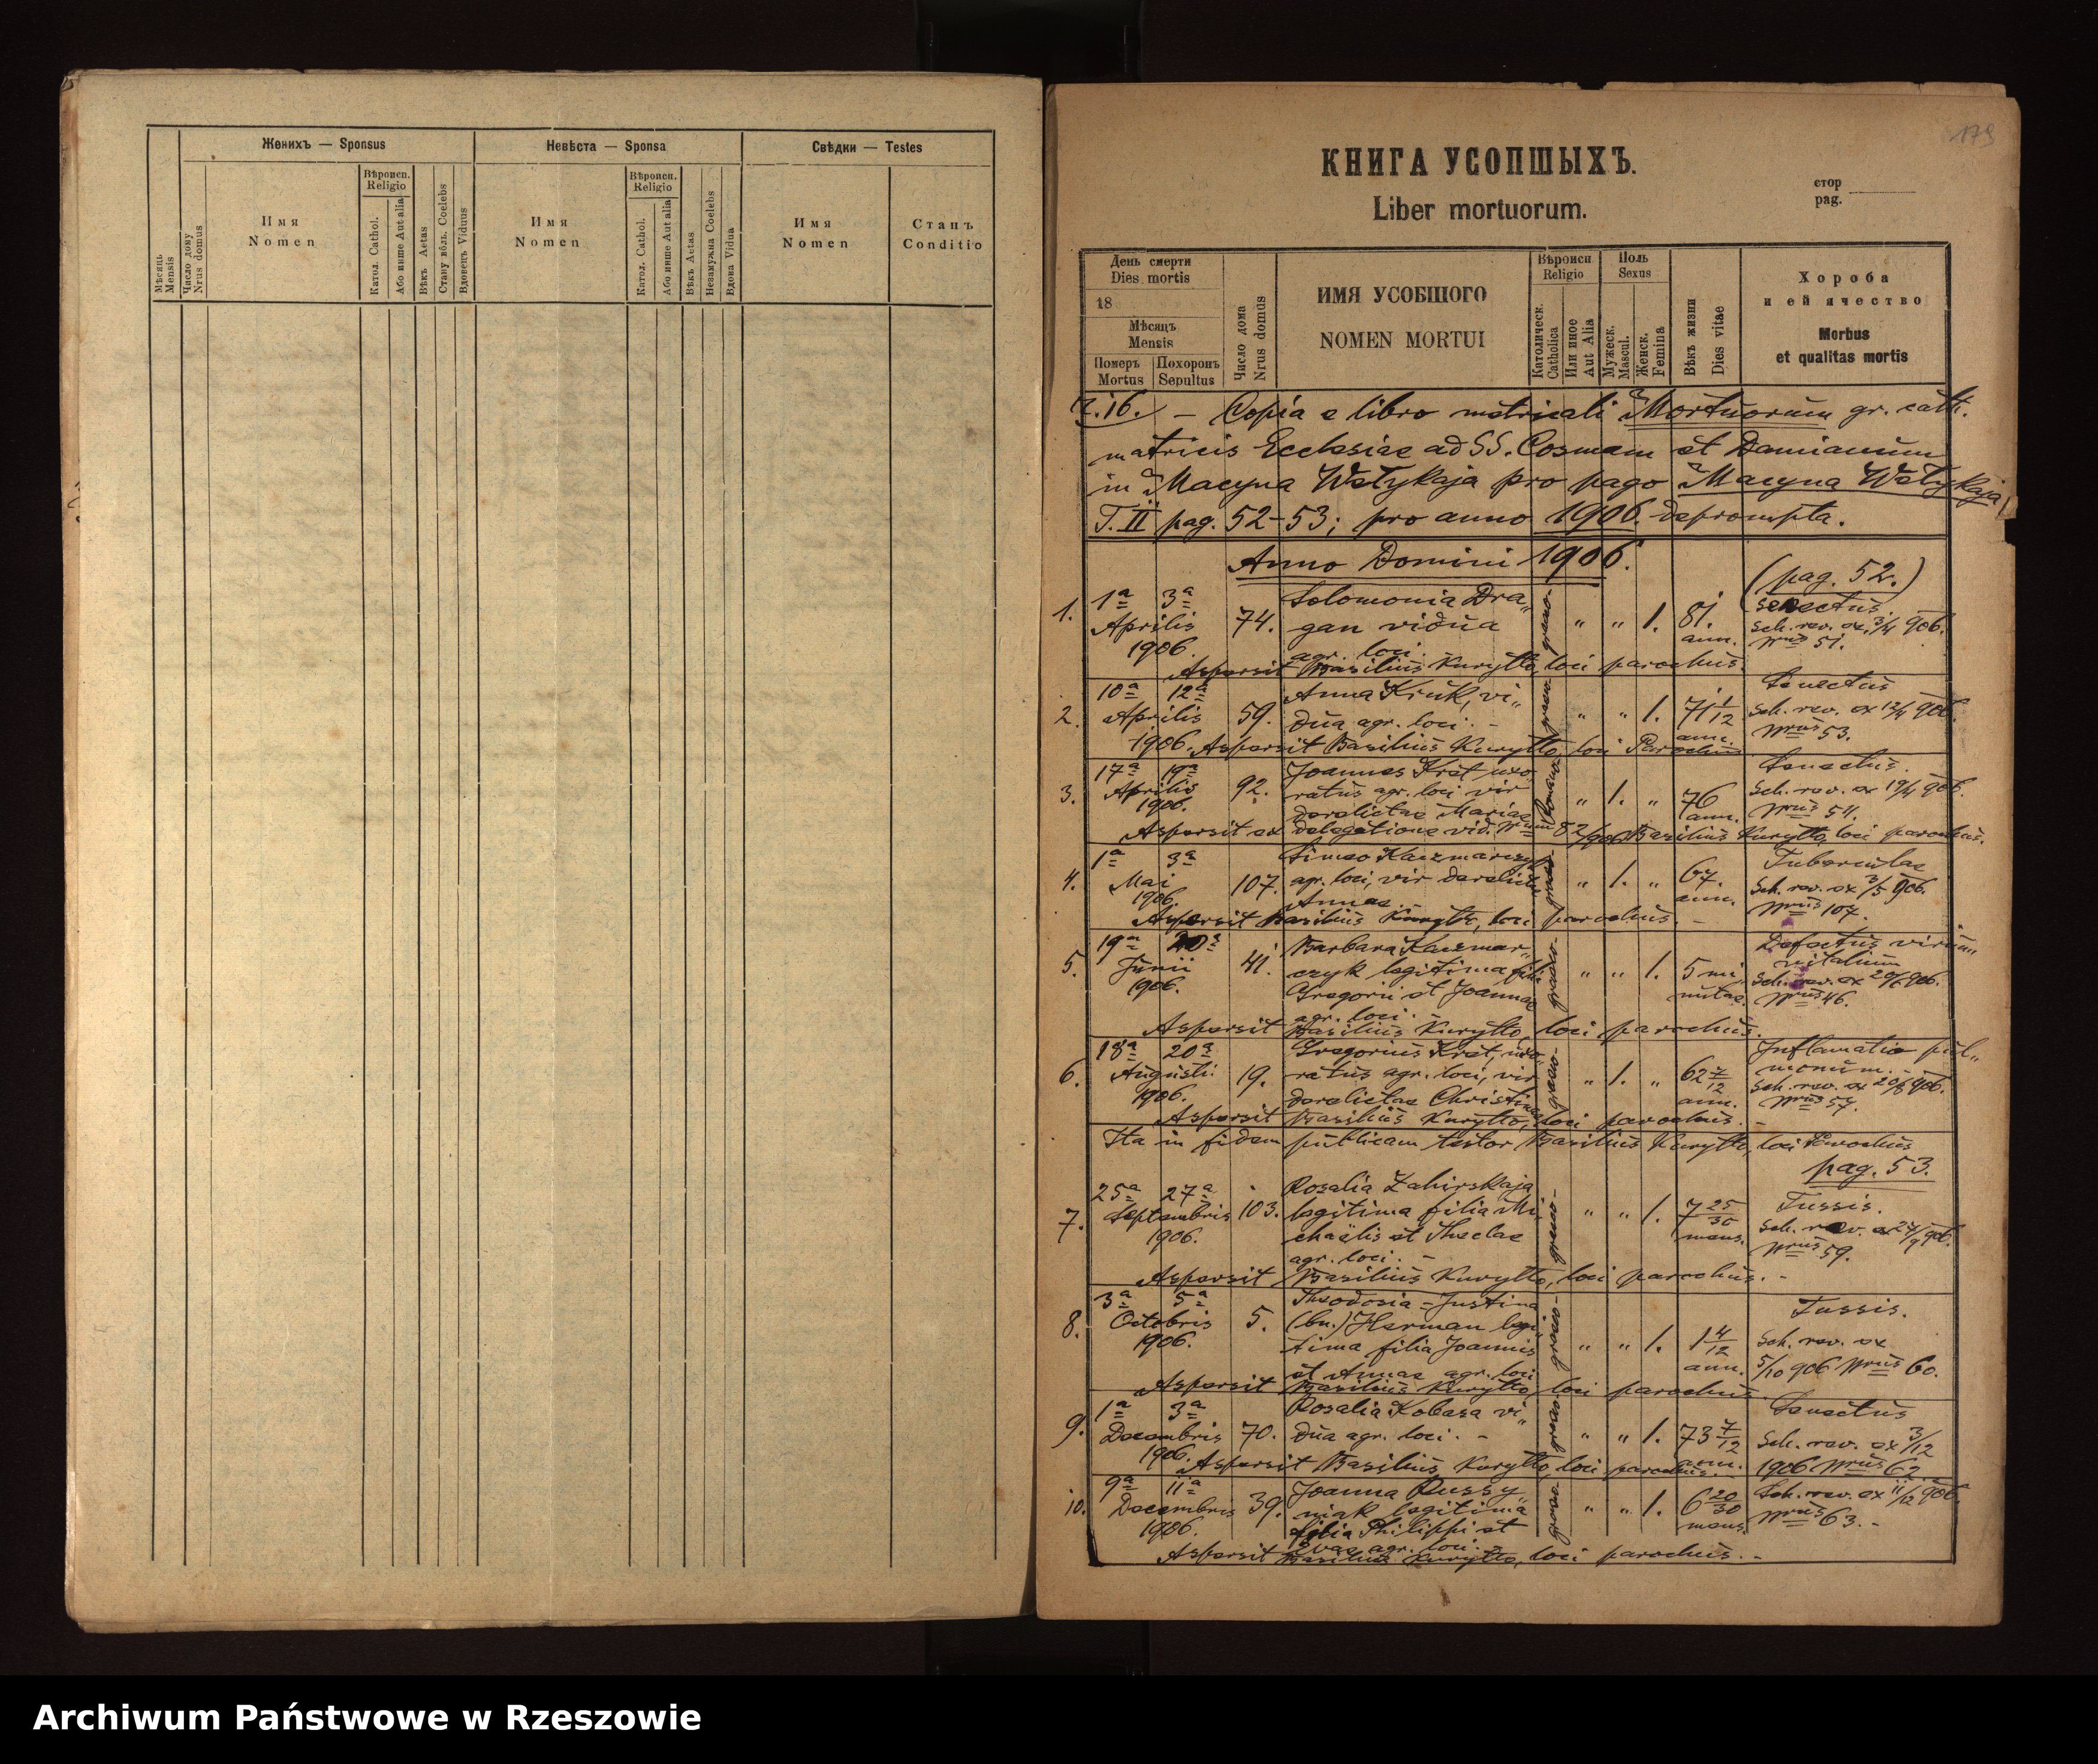 Женихъ — Sponsus
Невѣста — Sponsa
Свѣдки — Testes
Мѣсяць Mensis
Число дому Nrus domus
Имя
Nomen
Вѣроисп.
Religio
Катол. Cathol.
Або инше Aut alia
Вѣкъ Aetas
Стану вôль. Coelebs
Вдовецъ Viduus
Имя
Nomen
Вѣроисп.
Religio
Катол. Cathol.
Або инше Aut alia
Вѣкъ Aetas
Незамужна Coelebs
Вдова Vidua
Имя
Nomen
Станъ
Conditio
179
КНИГА УСОПШЫХЪ.
Liber mortuorum.
стор
pag.
День смерти
Dies mortis
18
Мѣсяцъ
Mensis
Померъ
Mortus
Похоронъ
Sepultus
Число дома
Nrus domus
ИМЯ УСОБШОГО
NOMEN MORTUI
Вѣроисп
Religio
Католическ.
Catholica
Или иное
Aut Alia
Поль
Sexus
Мужеск.
Mascul.
Женск.
Femina
Вѣкъ жизни
Dies vitae
Хороба
и ей ячество
Morbus
et qualitas mortis
16. – Copia e libro metricali Mortuorum gr. cath.
matricis Ecclesiae ad SS. Cosmam et Damianum
in Macyna Welykaja pro pago Macyna Welykaja,
T. II pag. 52-53; pro anno 1906. deprompta.
Anno Domini 1906.
(pag. 52.)
1. 1a 3a Aprilis 1906. 74. Solomonia Dra„
gan vidua
agr. loci. graeco- „ „ 1. 81. ann. Senectus.
Sch. rev. ex 3/4 906.
Nrus 51.
Aspersit Basilius Kuryłło, loci parochus.
2. 10a 12a Aprilis 1906. 59. Anna Kruk, vi„
dua agr. loci. – graeco- „ „ 1. 71 1/12 ann. Senectus
Sch. rev. ex 12/4 906.
Nrus 53.
Aspersit Basilius Kuryłło, loci Parochus
3. 17a 19a Aprilis 1906. 92. Joannes Kret uxo„
ratus agr. loci vir
derelictae Mariae Romano- „ 1. „ 76 ann. Senectus.
Sch. rev. ex 19/4 906.
Nrus 54.
Aspersit ex delegatione vid. Nrum 82/906 Basilius Kuryłło, loci parochus.
4. 1a 3a Mai 1906. 107. Simeo Kaczmarczyk
agr. loci, vir derelictae
Annae. graeco- „ 1. „ 67. ann. Tuberculae
Sch. rev. ex 3/5 906.
Nrus 107.
Aspersit Basilius Kuryłło, loci parochus. –
5. 19a 20a Junii 1906. 41. Barbara Kaczmar„
czyk legitima filia
Gregorii et Joannae
agr. loci. – graeco- „ „ 1. 5 mi„
nutae. Defectus virium„
vitalium
Sch. rev. ex 20/6 906.
Nrus 46.
Aspersit Basilius Kuryłło, loci parochus.
6. 18a 20a Augusti 1906. 19. Gregorius Kret, uxo„
ratus agr. loci, vir
derelictae Christinae graeco- „ 1. „ 62 7/12 ann. Inflamatio pul„
monum. –
Sch. rev. ex 20/8 906.
Nrus 57.
Aspersit Basilius Kuryłło, loci parochus. –
Ita in fidem publicam testor Basilius Kuryłło, loci Parochus
pag. 53.
7. 25a 27a Septembris 1906. 103. Rosalia Zahirskaja
legitima filia Mi„
chaëlis et Theclae
agr. loci. – graeco- „ „ 1. 7 25/30 mens. Tussis.
Sch. rev. ex 27/9 906.
Nrus 59.
Aspersit Basilius Kuryłło, loci parochus. –
8. 3a 5a Octobris 1906. 5. Theodosia - Justina
(bn.) Herman legi„
tima filia Joannis
et Annae agr. loci graeco- „ „ 1. 1 4/12 ann. Tussis.
Sch. rev. ex
5/10 906 Nrus 60.
Aspersit Basilius Kuryłło, loci parochus.
9. 1a 3a Decembris 1906. 70. Rosalia Kobasa vi„
dua agr. loci. – graeco- „ „ 1. 73 7/12 ann. Senectus
Sch. rev. ex 3/12
1906 Nrus 62.
Aspersit Basilius Kuryłło, loci parochus.
10. 9a 11a Decembris 1906. 39. Joanna Russy„
niak legitima
filia Philippi et
Evae agr. loci. – graeco- „ „ 1. 6 20/30 mens. Sch. rev. ex 11/12 906.
Nrus 63. –
Aspersit Basilius Kuryłło, loci parochus. –
Archiwum Państwowe w Rzeszowie